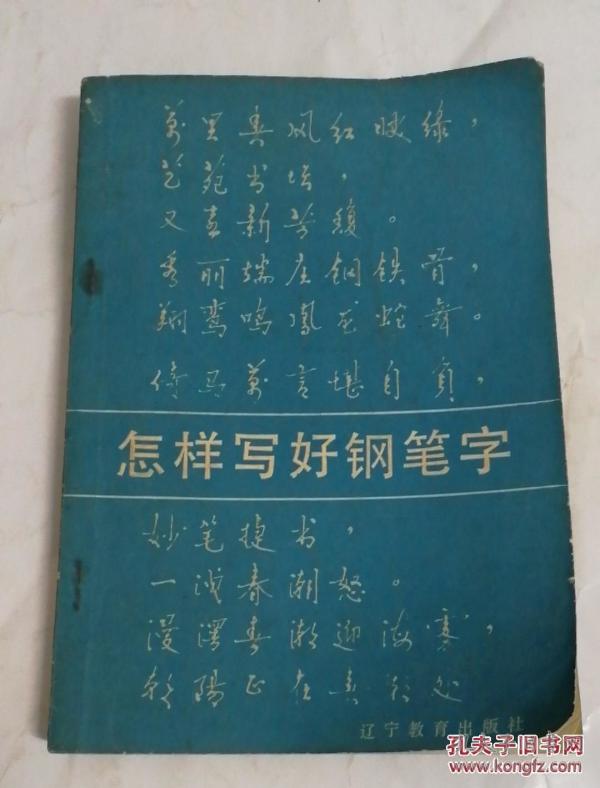 万里春风红映绿，
艺苑书坛，
又喜新苗馥。
秀丽端庄钢铁骨，
翔鸾鸣凤龙蛇舞。
倚马万言堪自负，
怎样写好钢笔字
妙笔捷书，
一浅春潮怒。
漫润春潮迎海寒，
朝阳正在春潮处
辽宁教育出版社
孔夫子旧书网
www.kongfz.com